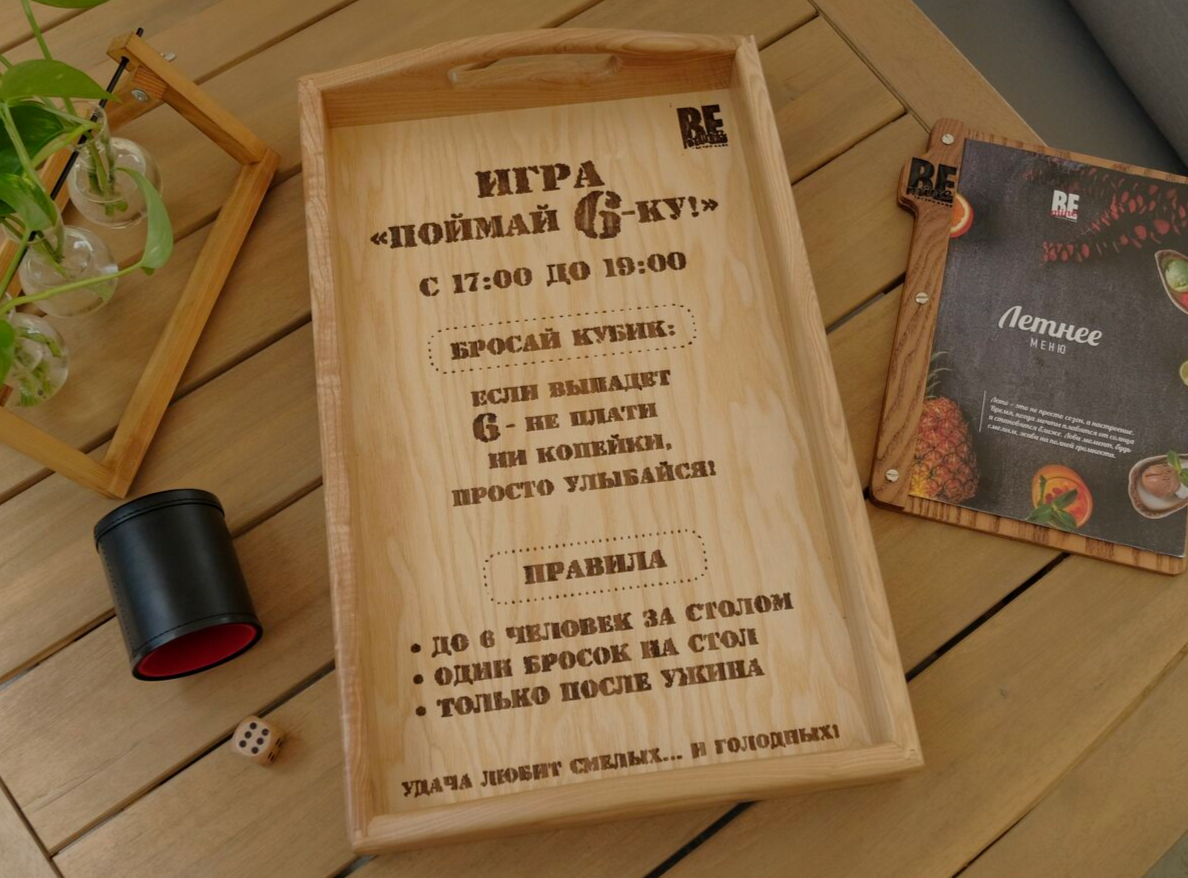 BE
ИГРА
«ПОЙМАЙ 6-КУ!»
С 17:00 ДО 19:00
БРОСАЙ КУБИК:
ЕСЛИ ВЫПАДЕТ
6 - НЕ ПЛАТИ
НИ КОПЕЙКИ,
ПРОСТО УЛЫБАЙСЯ!
ПРАВИЛА
• ДО 6 ЧЕЛОВЕК ЗА СТОЛОМ
• ОДИН БРОСОК НА СТОЛ
• ТОЛЬКО ПОСЛЕ УЖИНА
УДАЧА ЛЮБИТ СМЕЛЫХ... И ГОЛОДНЫХ!
BE
BE
Летнее
МЕНЮ
Лето – это не просто сезон, а настроение.
Время, когда мечты плавятся от солнца
и становятся ближе. Лови момент, будь
смелым, живи на полной громкости.